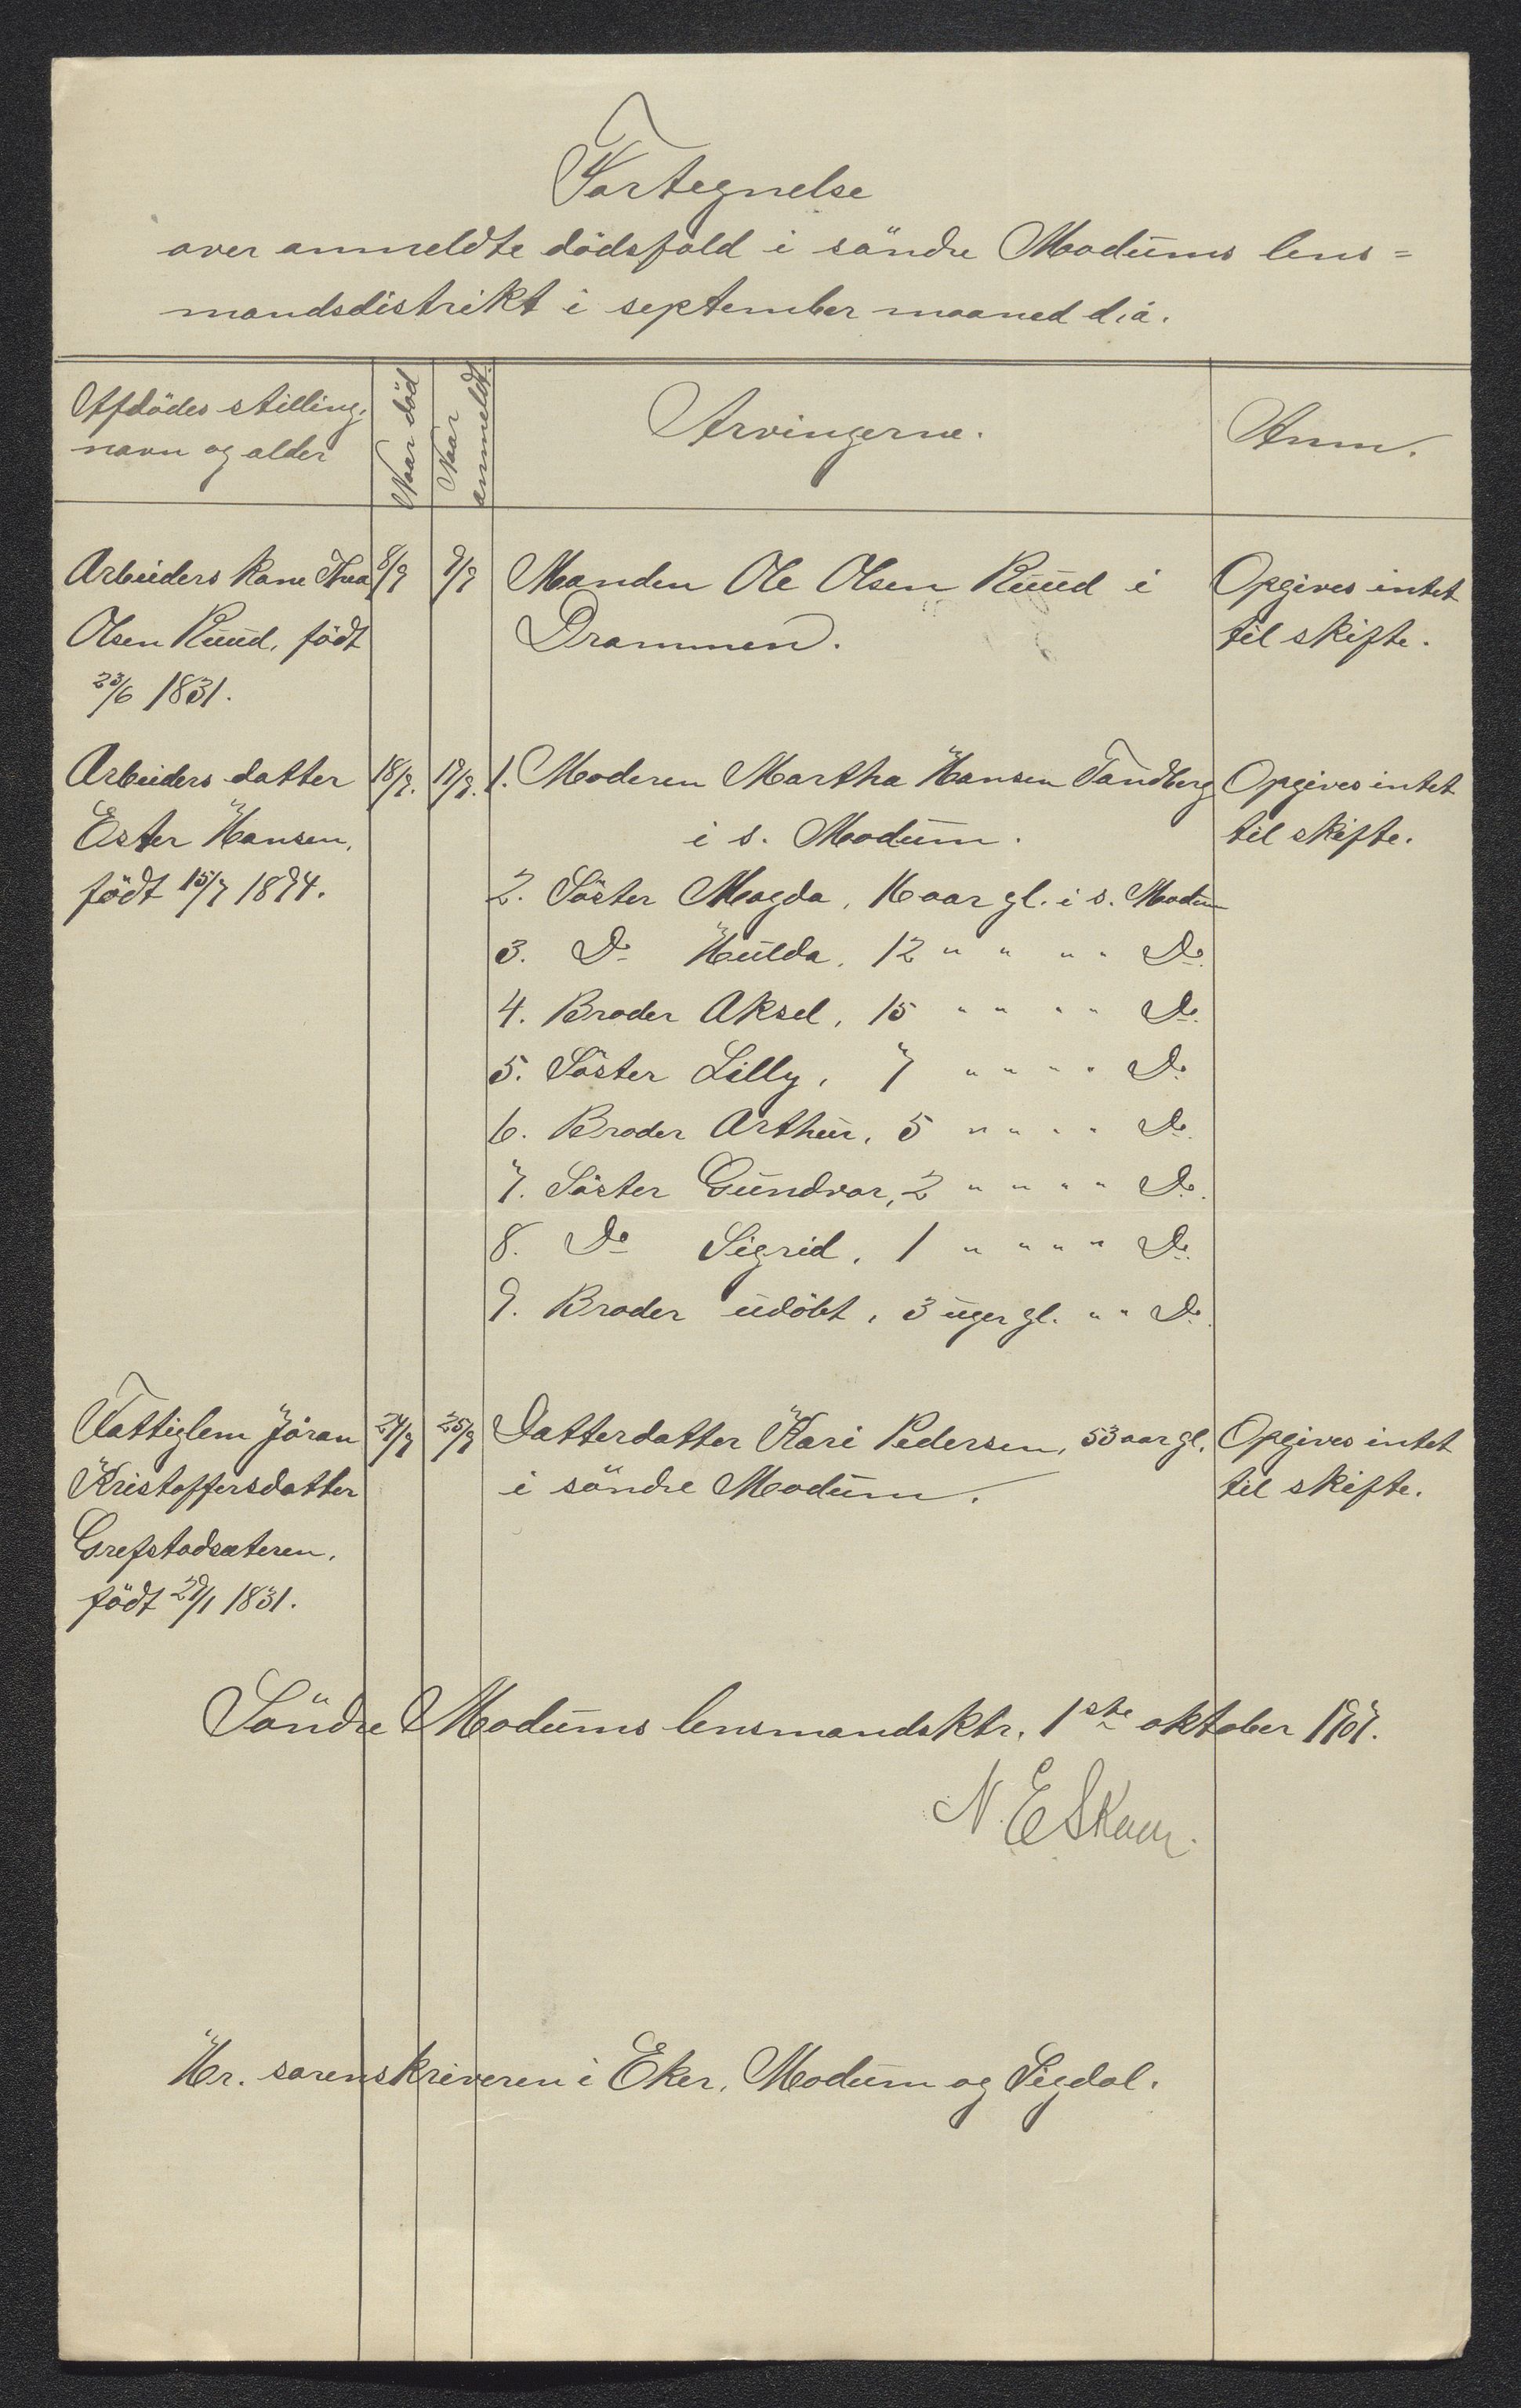 Fortegnelse
over anmeldte dödsfald i söndre Modums lens=
mandsdistrikt i september maaned d.å.
Afdödes stilling, navn og alder
Naar död
Naar anmeldt.
Arvingerne.
Anm.
Arbeiders kone Thea 8/9 9/9 Manden Ole Olsen Ruud i Opgives intet
Olsen Ruud, födt Drammen. til skifte.
23/6 1831.
Arbeiders datter 18/9. 19/9. 1. Moderen Martha Hansen Tandberg Opgives intet
Ester Hansen, i s. Modum. til skifte.
födt 15/7 1894. 2. Söster Magda, 16 aar gl. i s. Modum
3. Do Hulda, 12 " " " " Do.
4. Broder Aksel, 15 " " " " Do.
5. Söster Lilly, 7 " " " " Do.
6. Broder Arthur, 5 " " " " Do.
7. Söster Gundvor, 2 " " " " Do.
8. Do Sigrid, 1 " " " " Do.
9. Broder udöbt, 3 uger gl. " " Do.
Fattiglem Jöran 24/9 25/9 Datterdatter Kari Pedersen, 53 aar gl. Opgives intet
Kristoffersdatter i söndre Modum. til skifte.
Grefstadsæteren,
födt 29/1 1831.
Söndre Modums lensmandsktr. 1ste oktober 1907.
N. E Skuu
Hr. sorenskriveren i Eker, Modum og Sigdal.